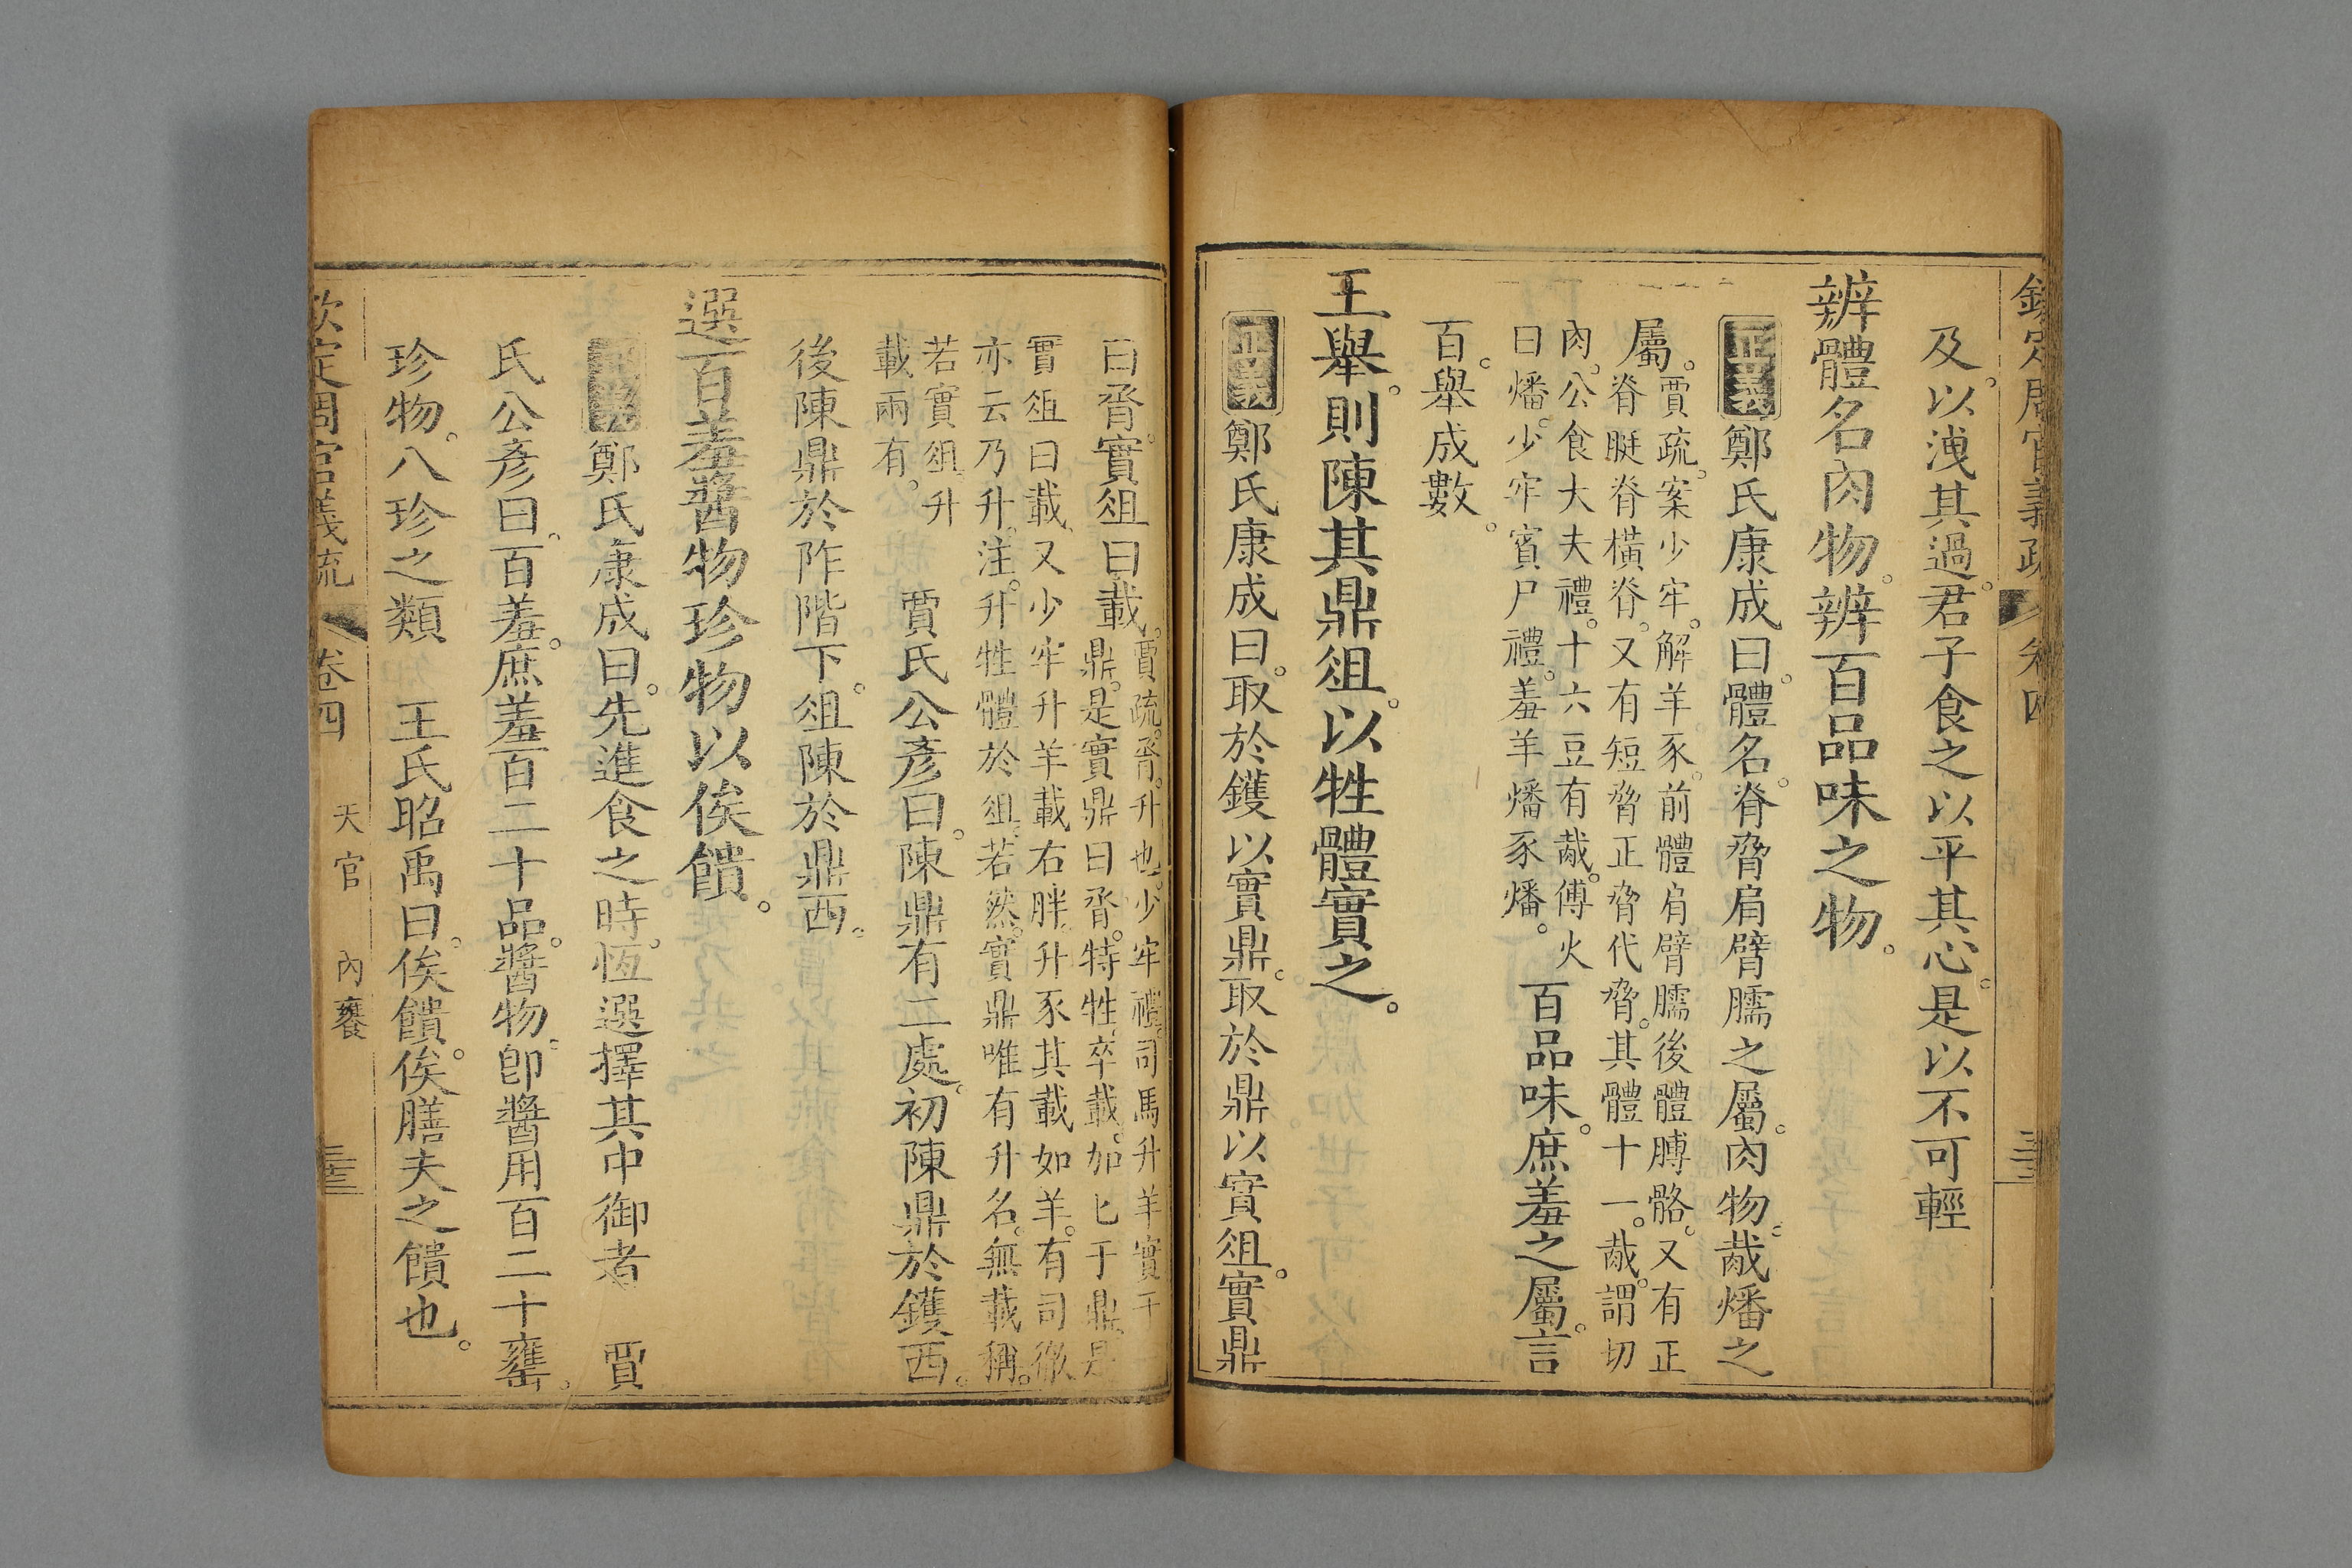 欽定周官義疏 卷四
及以洩其過。君子食之以平其心。是以不可輕
辨體名肉物。辨百品味之物。
正義鄭氏康成曰。體名。脊脅肩臂臑之屬。肉物。胾燔之
屬。
賈疏。案少牢。解羊豕。前體肩臂臑。後體膊骼。又有正
脊脡脊橫脊。又有短脅正脅代脅。其體十一。胾。謂切
肉。公食大夫禮。十六豆有胾。傅火
曰燔。少牢賓尸禮。羞羊燔豕燔。
百品味。庶羞之屬。言
百。舉成數。
王舉。則陳其鼎俎。以牲體實之。
正義鄭氏康成曰。取於鑊以實鼎。取於鼎以實俎。實鼎
曰脀。實俎曰載。
賈疏。脀。升也。少牢禮。司馬升羊實于一
鼎。是實鼎曰脀。特牲。卒載。加匕于鼎。是
實俎曰載。又少牢升羊載右胖。升豕其載如羊。有司徹
亦云乃升。注。升牲體於俎。若然。實鼎唯有升名。無載稱。
若實俎。升
載兩有。
賈氏公彥曰。陳鼎有二處。初陳鼎於鑊西。
後陳鼎於阼階下。俎陳於鼎西。
選百羞醬物珍物以俟饋。
正義鄭氏康成曰。先進食之時。恆選擇其中御者 賈
氏公彥曰。百羞。庶羞百二十品。醬物。卽醬用百二十罋。
珍物。八珍之類 王氏昭禹曰。俟饋。俟膳夫之饋也。
欽定周官義疏 卷四 天官 內饔